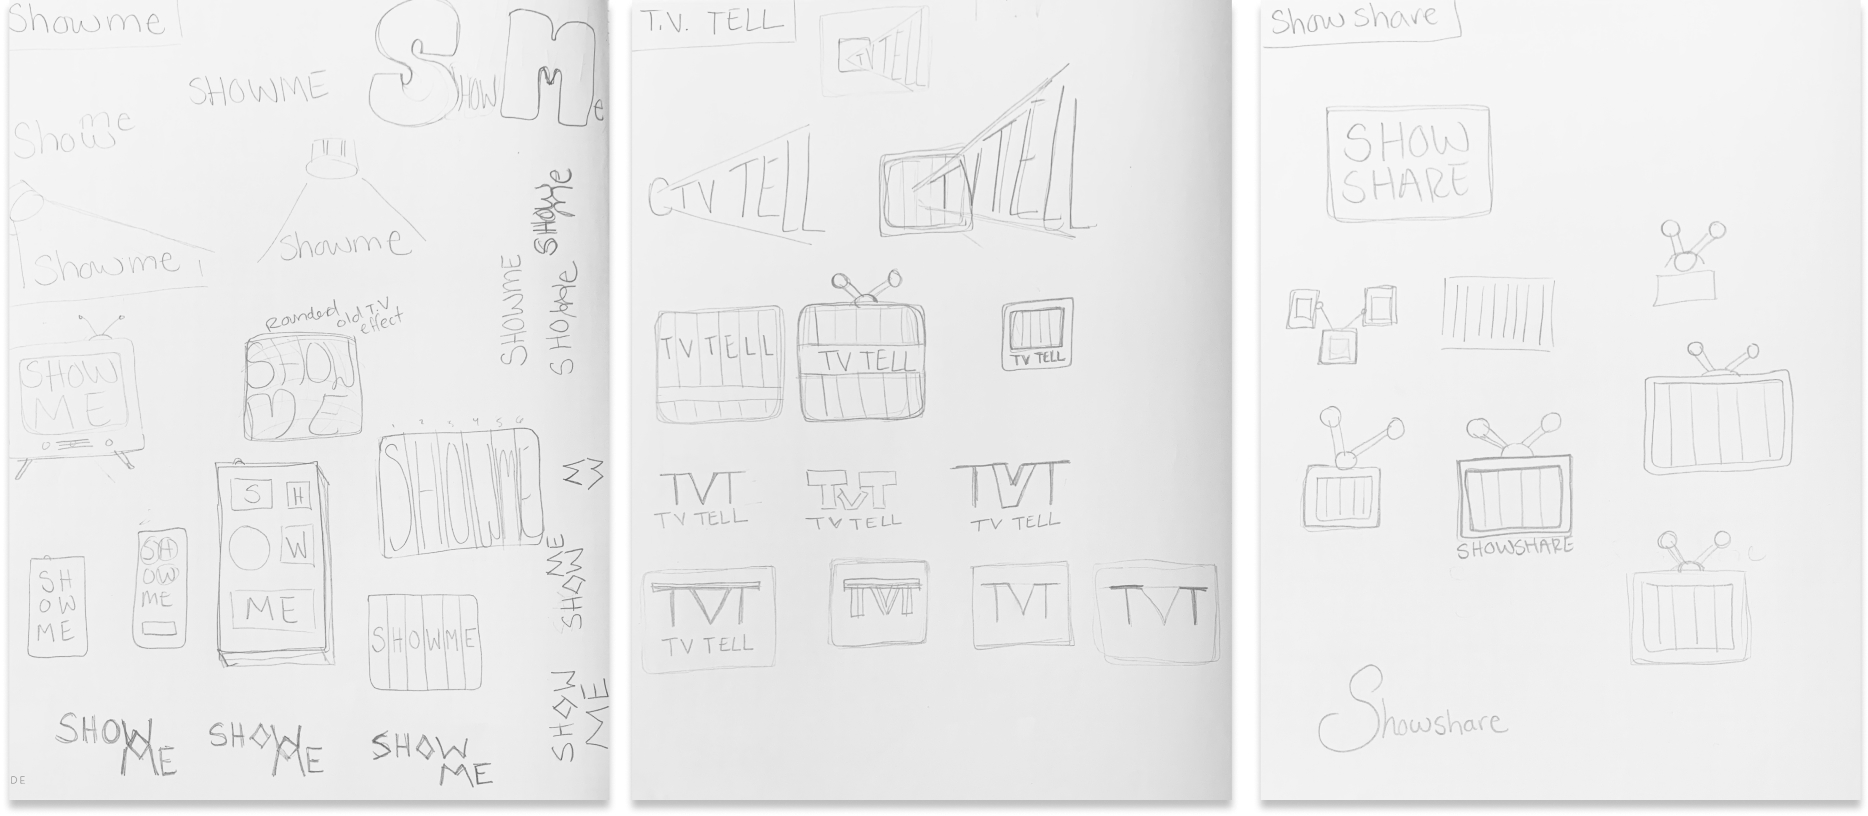 Showme
SHOWME
SHOW Me
Show me
Showme
Showme
SHOWME
SHOWME
SHOWME
Rounded
old T.V
effect
SHOW
ME
SHOW
ME
1 2 3 4 5 6
SHOWME
S H
O W
ME
SH
OW
ME
SH
OW
ME
SHOWME
M
W
SHOW
ME
SHOW
ME
SHOW
ME
SHOW
ME
SHOW
ME
DE
T.V. TELL
TV TELL
TV TELL
TV TELL
TV TELL
TV TELL
TV TELL
TVT
TV TELL
TVT
TV TELL
TVT
TV TELL
TVT
TV TELL
TVT
TVT
TVT
Showshare
SHOW
SHARE
SHOWSHARE
Showshare